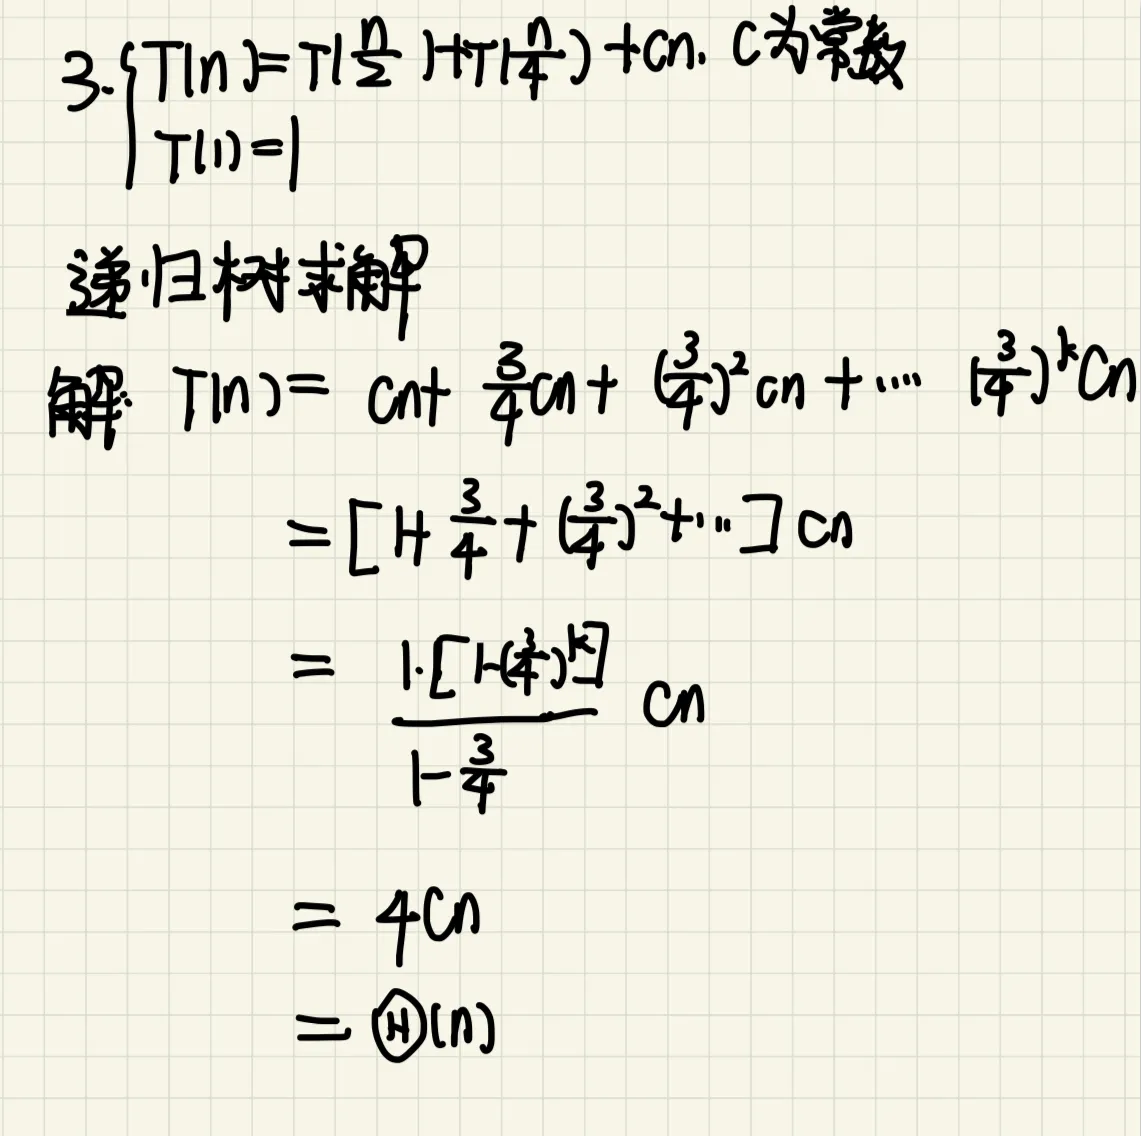 3. { T(n)=T(n/2)+T(n/4)+Cn. C为常数
T(1)=1
递归树求解
解: T(n)= cn+ 3/4 cn+ (3/4)^2 cn + .... (3/4)^k Cn
= [1+ 3/4 + (3/4)^2 + ...] Cn
= 1·[1-(3/4)^k] / 1-3/4 Cn
= 4Cn
= Θ(n)